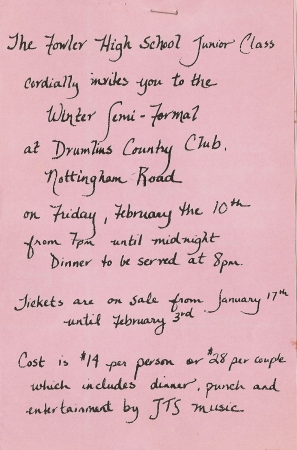 The Fowler High School Junior Class
cordially invites you to the
Winter Semi-Formal
at Drumlins Country Club.
Nottingham Road
on Friday, February the 10th
from 7pm until midnight
Dinner to be served at 8pm.
Tickets are on sale from January 17th
until February 3rd
Cost is $14 per person or $28 per couple
which includes dinner, punch and
entertainment by JTS music.